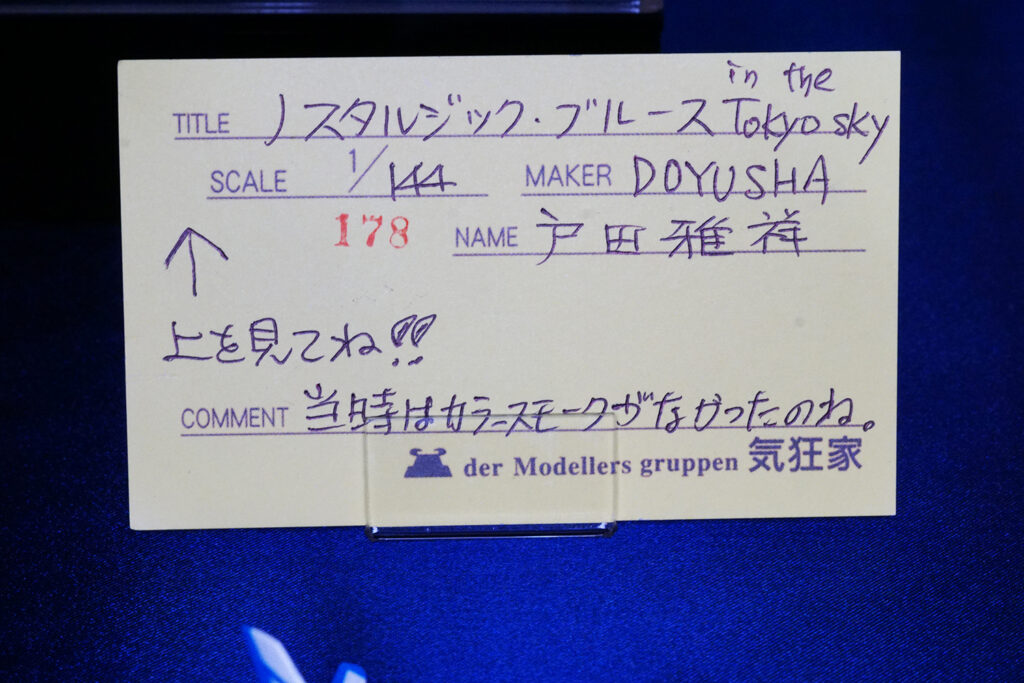 in the
TITLE ノスタルジック・ブルース Tokyo sky
SCALE 1/144 MAKER DOYUSHA
178 NAME 戸田雅祥
↑
上を見てね!!
COMMENT 当時はカラースモークがなかったのね。
der Modellers gruppen 気狂家